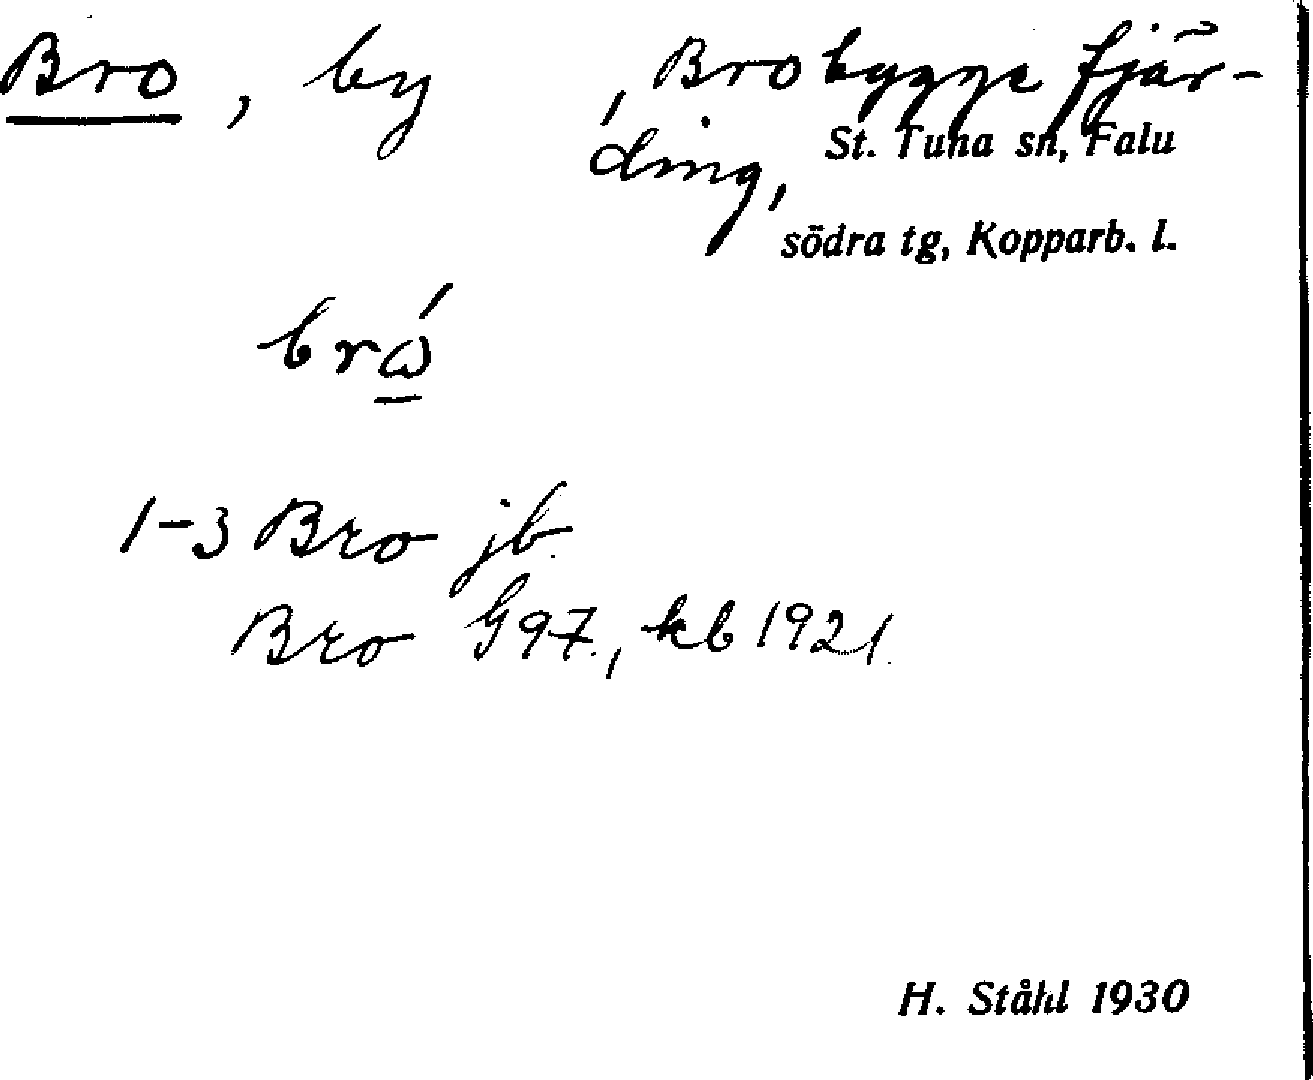 Bro, by, Brobygge fjär-
ding, St. Tuna sn, Falu
södra tg, Kopparb. l.
brѡ́
1-3 Bro jb.
Bro G97., kb 1921.
H. Ståhl 1930